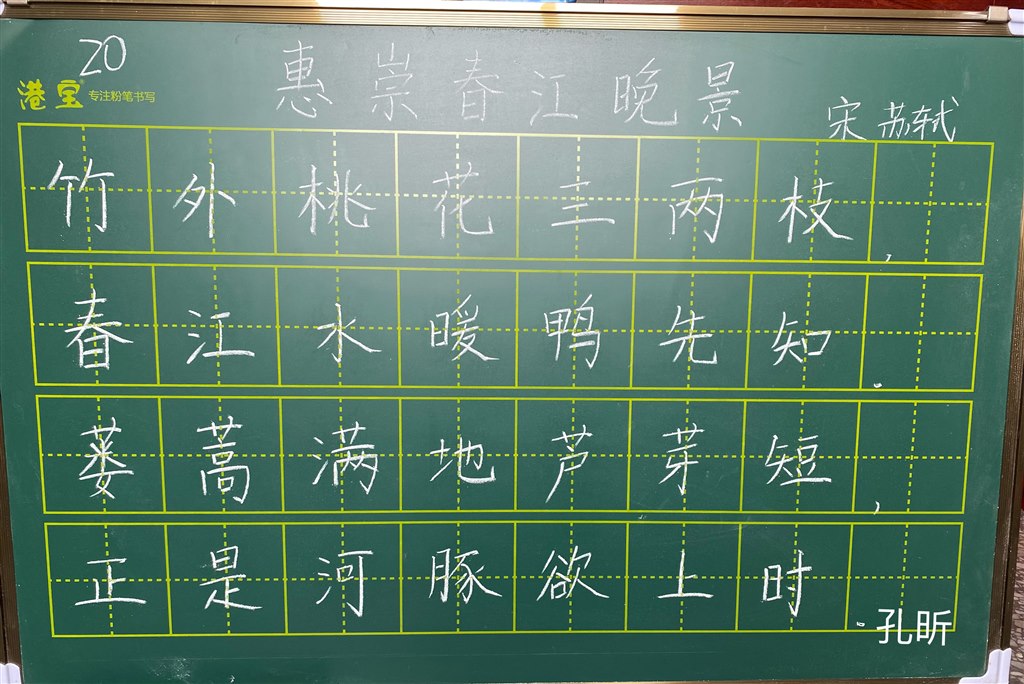 20
港宝 专注粉笔书写
惠崇春江晚景
宋 苏轼
竹外桃花三两枝，
春江水暖鸭先知。
蒌蒿满地芦芽短，
正是河豚欲上时。
孔昕